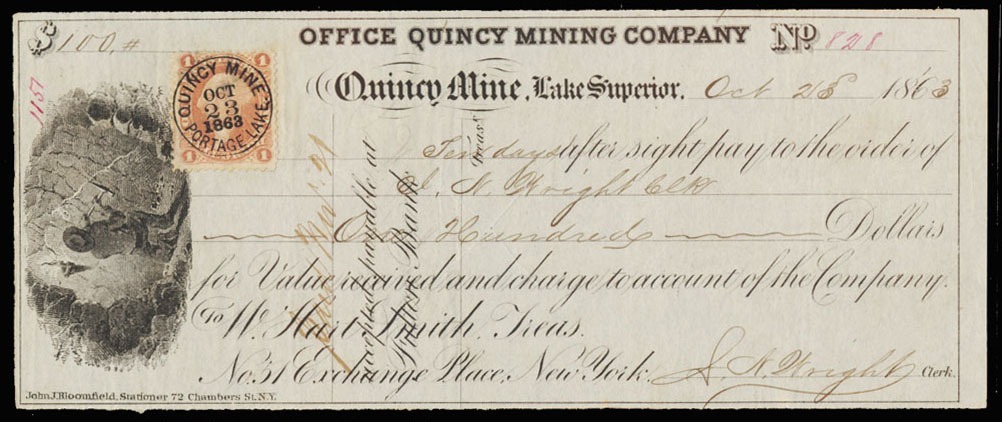 $100.#
OFFICE QUINCY MINING COMPANY No 828
1157
Quincy Mine, Lake Superior. Oct 23 1863
1 1
QUINCY MINE
OCT
23
1863
PORTAGE LAKE.
1 1
Ten days after sight pay to the order of
S. N. Wright Clk
One Hundred Dollars
for Value received and charge to account of the Company.
To Wm Hart Smith, Treas.
No. 31 Exchange Place, New York. S. N. Wright Clerk.
accepted payable at
Bank
Treas
John J. Bloomfield, Stationer 72 Chambers St. N.Y.